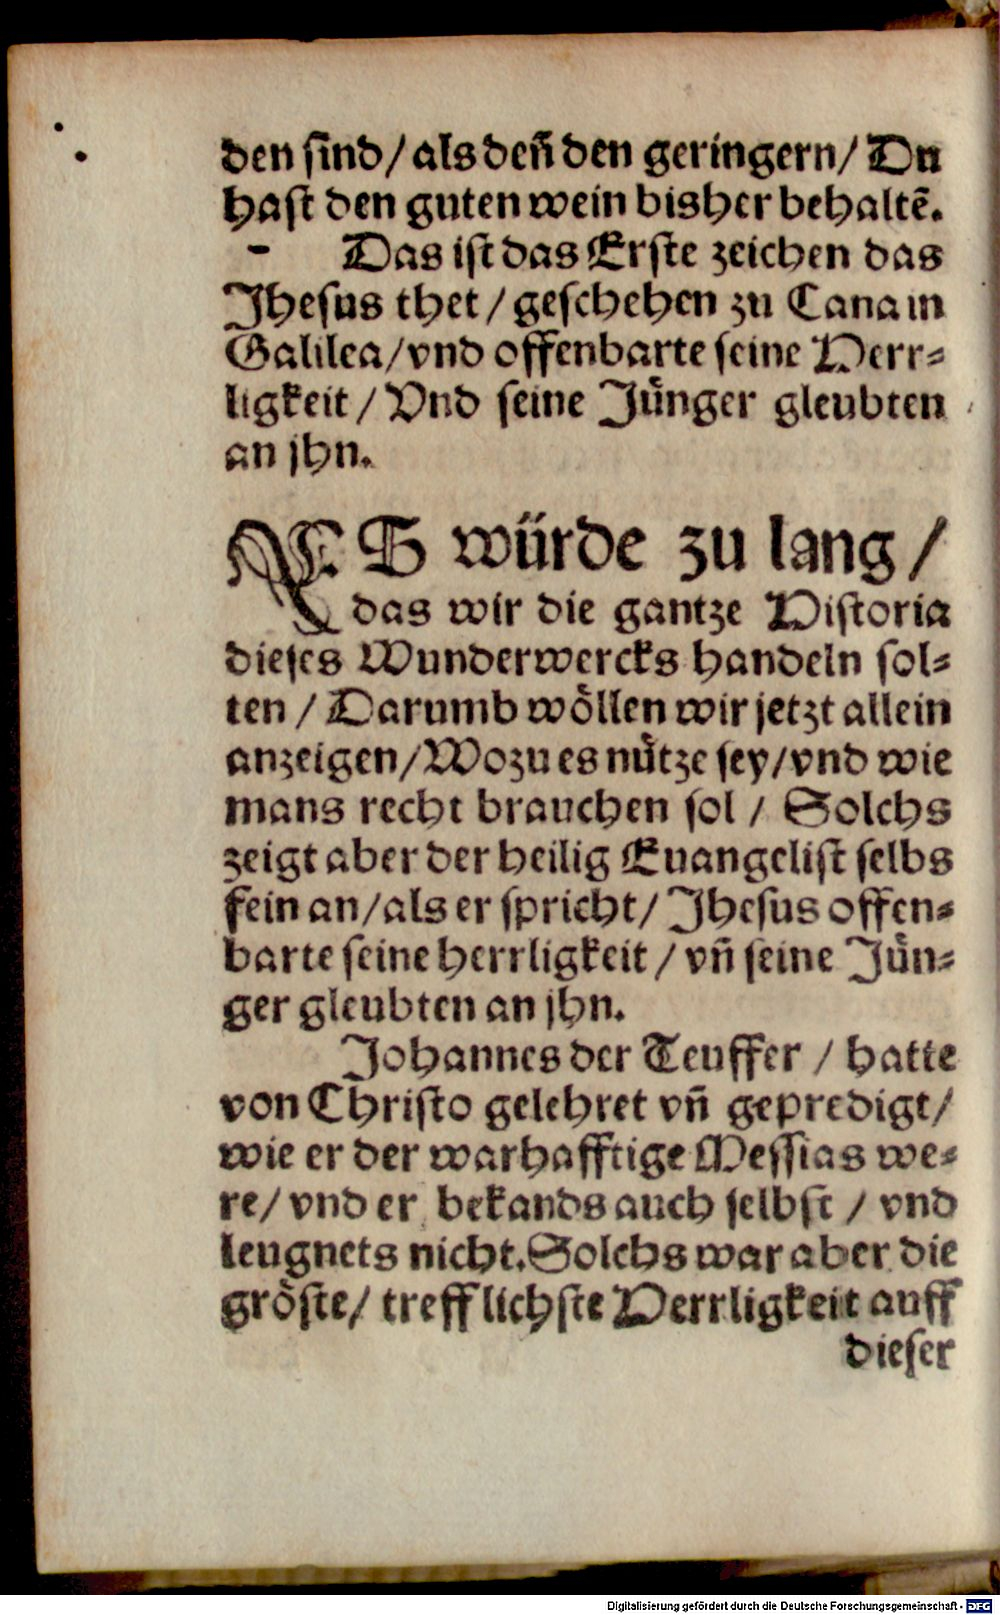 den sind/als deñ den geringern/ Du
hast den guten wein bisher behaltē.
Das ist das Erste zeichen das
Jhesus thet/geschehen zu Cana in
Galilea/vnd offenbarte seine Herr⸗
ligkeit/Vnd seine Jünger gleubten
an jhn.
ES würde zu lang/
das wir die gantze Historia
dieses Wunderwercks handeln sol⸗
ten/Darumb wöllen wir jetzt allein
anzeigen/Wozu es nütze sey/vnd wie
mans recht brauchen sol/ Solchs
zeigt aber der heilig Euangelist selbs
fein an/als er spricht/ Jhesus offen⸗
barte seine herrligkeit/vñ seine Jün⸗
ger gleubten an jhn.
Johannes der Teuffer/hatte
von Christo gelehret vñ gepredigt/
wie er der warhafftige Messias we⸗
re/vnd er bekands auch selbst/vnd
leugnets nicht. Solchs war aber die
gröste/ trefflichste Herrligkeit auff
dieser
Digitalisierung gefördert durch die Deutsche Forschungsgemeinschaft - DFG